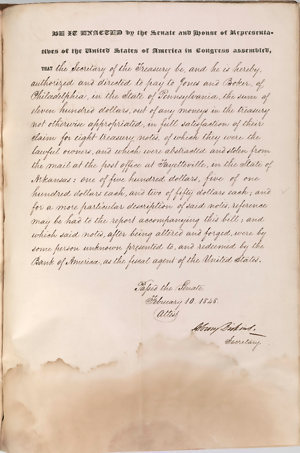 BE IT ENACTED by the Senate and House of Representa-
tives of the United States of America in Congress assembled,
THAT the Secretary of the Treasury be, and he is hereby,
authorized and directed to pay to Jones and Boker, of
Philadelphia, in the State of Pennsylvania, the sum of
eleven hundred dollars, out of any moneys in the treasury
not otherwise appropriated, in full satisfaction of their
claim for eight treasury notes, of which they were the
lawful owners, and which were abstracted and stolen from
the mail at the post office at Fayetteville, in the State of
Arkansas; one of five hundred dollars, five of one
hundred dollars each, and two of fifty dollars each; and
for a more particular description of said notes, reference
may be had to the report accompanying this bill; and
which said notes, after being altered and forged, were by
some person unknown presented to, and redeemed by the
Bank of America, as the fiscal agent of the United States.
Passed the Senate
February 10, 1848.
Attest
Secretary